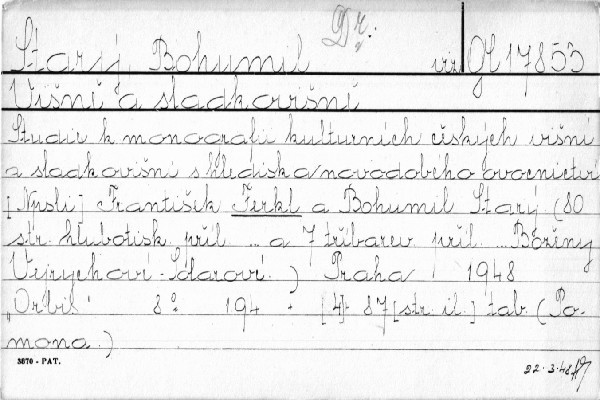 Dr.
Starý, Bohumil viz GE 17855
Višní a sladkovišní
Studie k monografii kulturních českých višní
a sladkovišní s hlediska novodobého ovocnictví
[Napsali] František Ferkl a Bohumil Starý (80
str. hlubotisk. příl. ... a 7 tříbarev. příl. ... Boženy
Vejrychové-Solarové.) Praha 1948
„Orbis“ 8° 194 - [4] 87 [str. il.] tab. (Po-
mona.)
3870 - PAT. 22.3.48